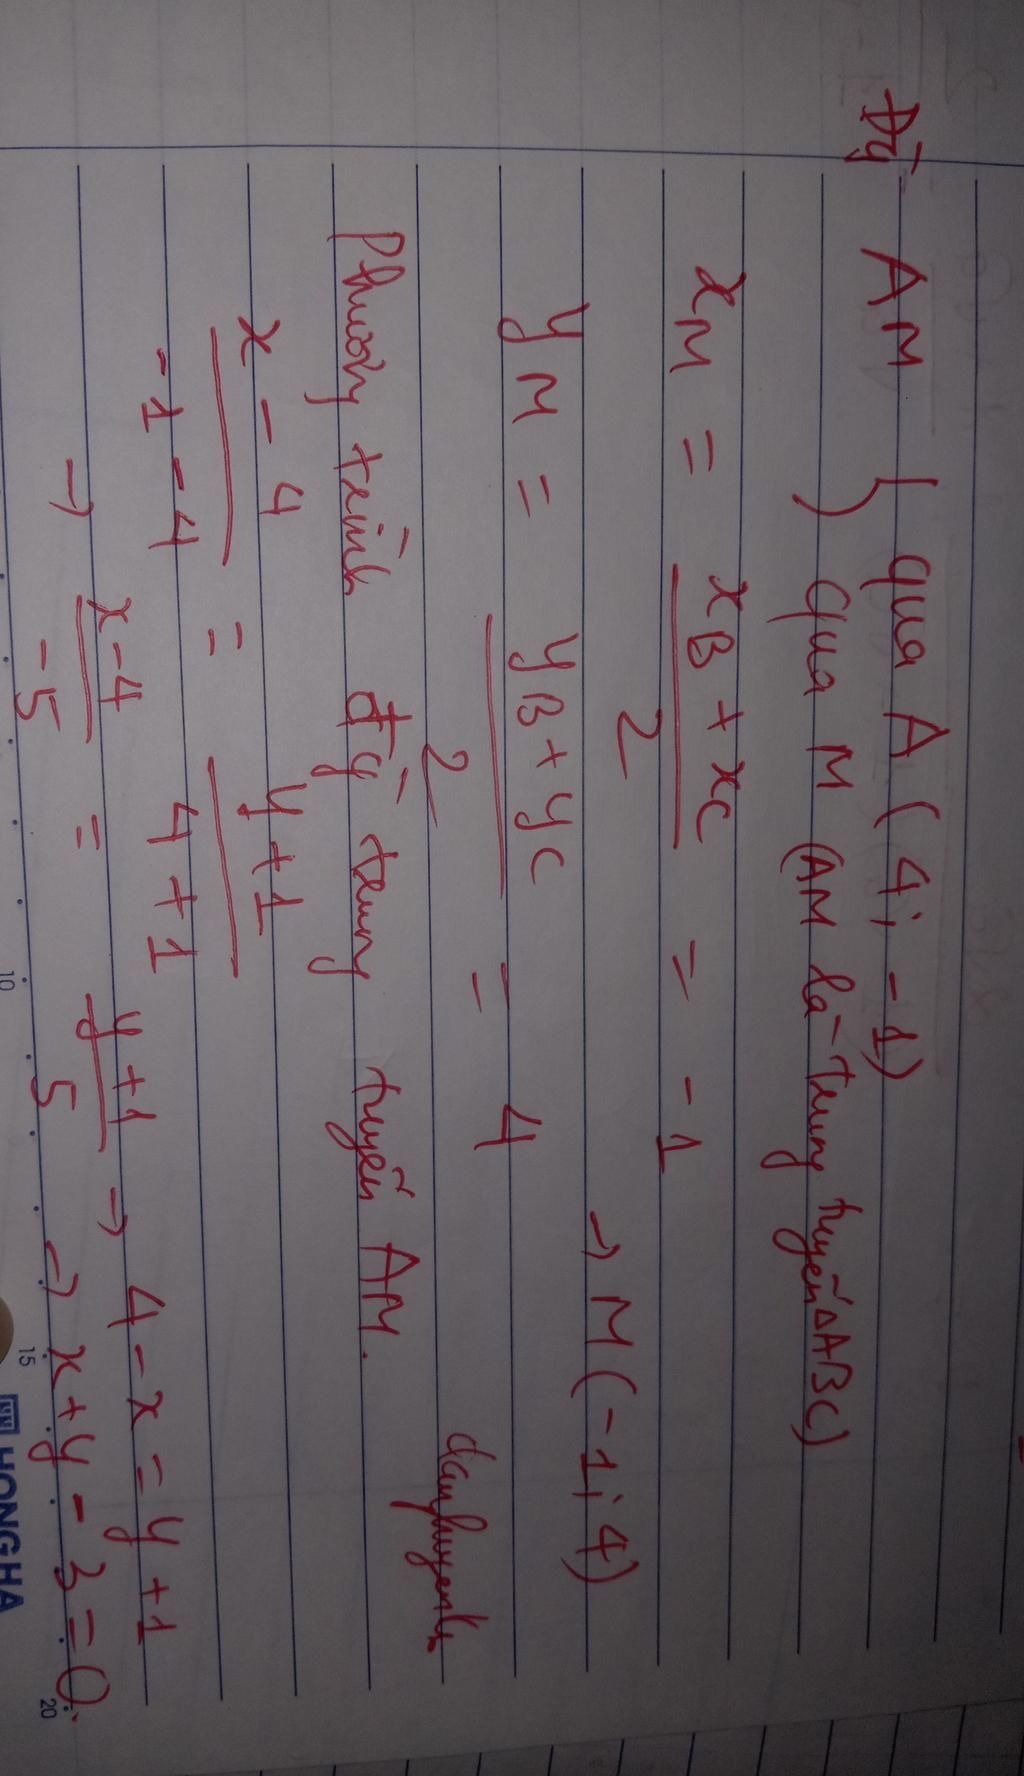 Đg̀ AM { qua A (4; -1)
qua M (AM là trung tuyến ΔABC)
xM = xB + xC / 2 = -1
→ M (-1; 4)
yM = yB + yC / 2 = 4
danhuyenh
Phương trình đg̀ trung tuyến AM.
x - 4 / -1 - 4 = y + 1 / 4 + 1
→ x - 4 / -5 = y + 1 / 5 → 4 - x = y + 1
→ x + y - 3 = 0.
10 15 20
HONG HA